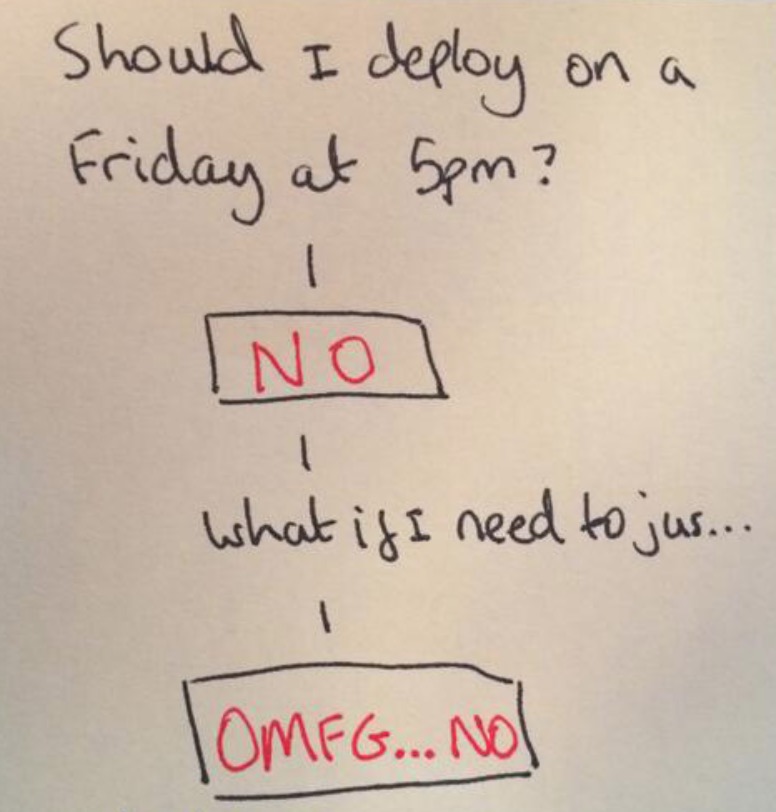 Should I deploy on a
Friday at 5pm?
NO
What if I need to jus...
OMFG... NO